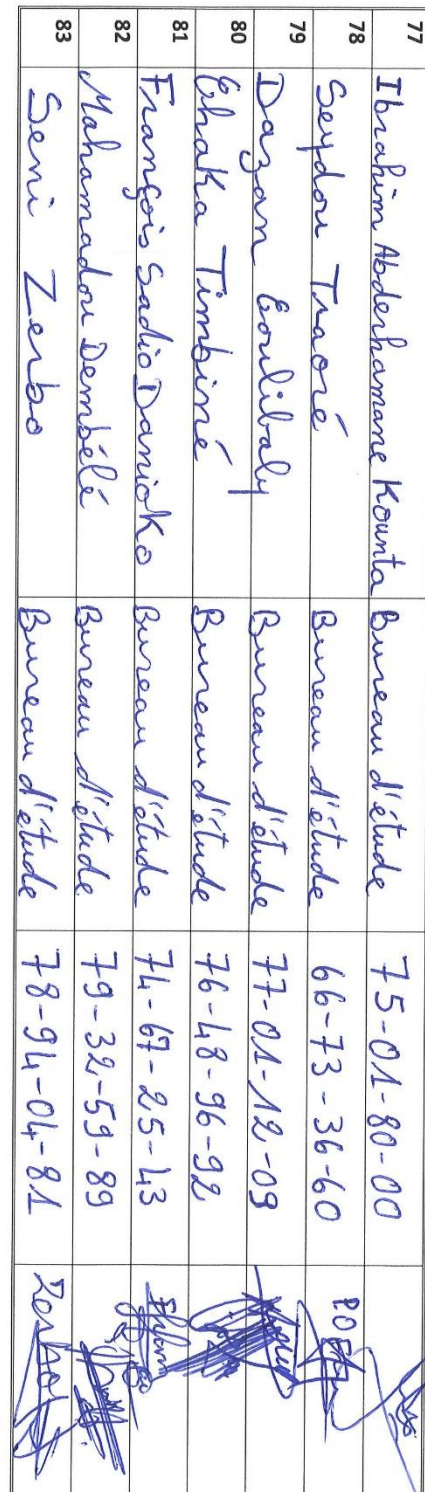 77 Ibrahim Abderhamane Kounta Bureau d'étude 75-01-80-00
78 Seydou Traoré Bureau d'étude 66-73-36-60
79 Dazan Coulibaly Bureau d'étude 77-01-12-09
80 Chaka Timbiné Bureau d'étude 76-48-96-92
81 François Sadio Danioko Bureau d'étude 74-67-25-43
82 Mahamadou Dembélé Bureau d'étude 79-32-59-89
83 Seni Zerbo Bureau d'étude 78-94-04-81 Zerbo